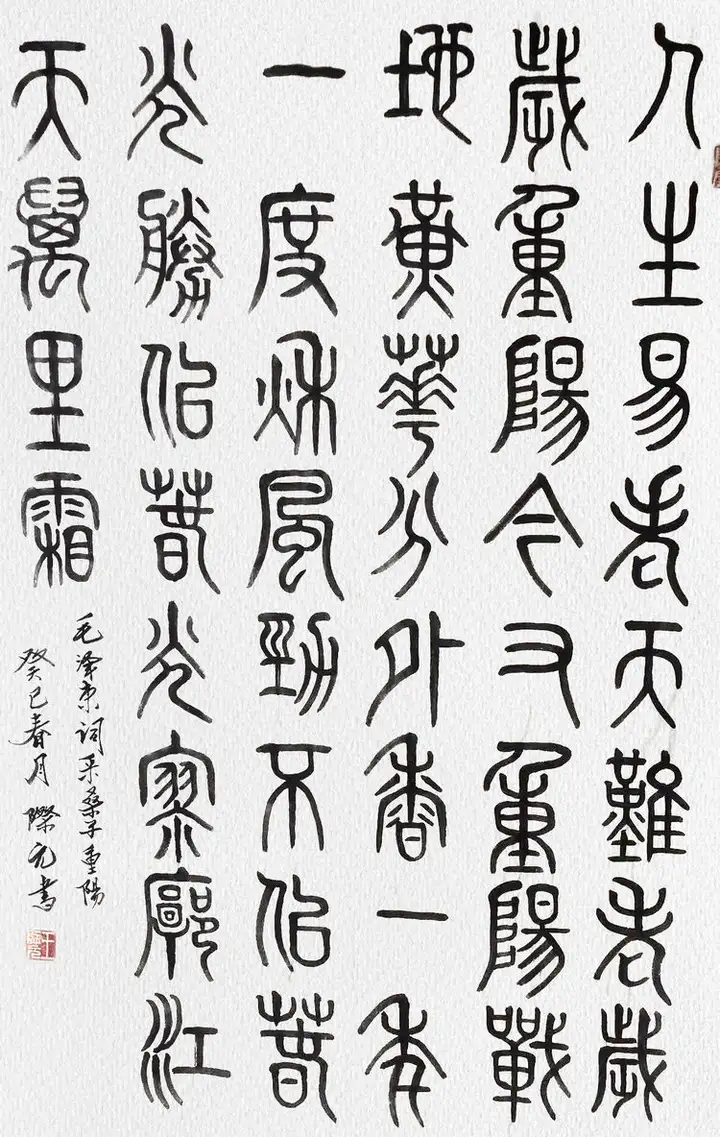 人生易老天難老歲
歲重陽今又重陽戰
地黃華分外香一年
一度秌風勁不佀萅
光勝佀萅光寥廓江
天萬里霜
毛泽东词采桑子重陽
癸巳春月 際元書